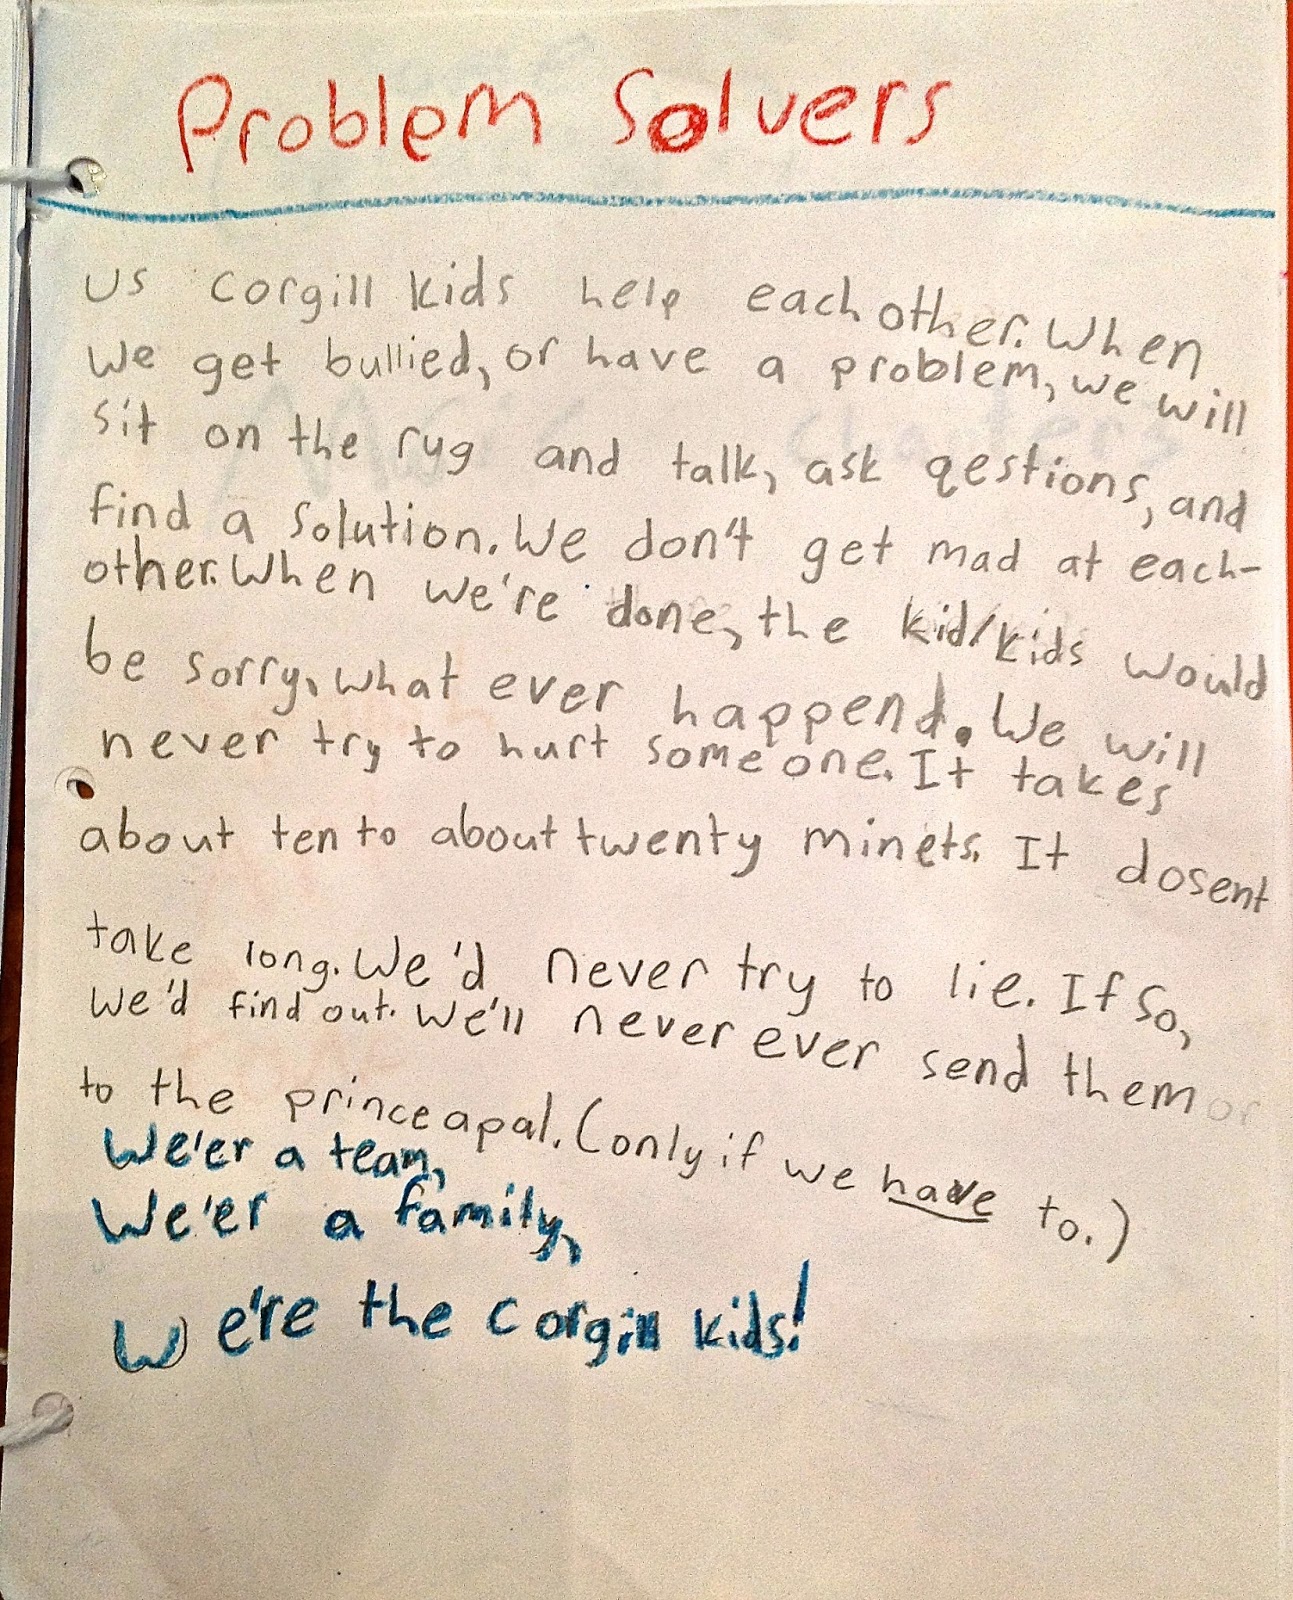 Problem Solvers
us corgill kids help each other. When
We get bullied, or have a problem, we will
sit on the rug and talk, ask qestions, and
find a solution. We don't get mad at each-
other. When we're done, the kid/kids would
be sorry, what ever happend. We will
never try to hurt someone. It takes
about ten to about twenty minets. It dosent
take long. We'd never try to lie. If so,
we'd find out. We'll never ever send them or
to the princeapal. (only if we have to.)
We'er a team,
We'er a family,
We're the corgill kids!